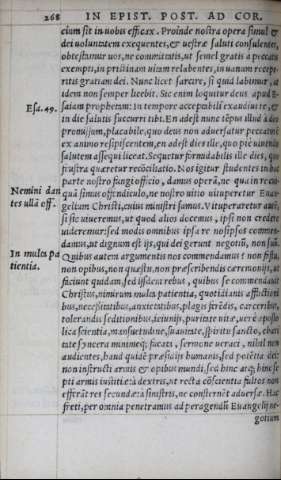 268 IN EPIST. POST. AD COR.
cium sit in uobis efficax. Proinde nostra opera simul &
dei uoluntatem exequentes, & uestræ saluti consulentes,
obtestamur uos, ne committatis, ut semel gratis à peccatis
exempti, in pristinam uitam relabentes, in uanum receperitis
gratiam dei. Nunc licet sarcire, si quid labimur, at
idem non semper licebit. Sic enim loquitur deus apud E-
Esa. 49. saiam prophetam: In tempore acceptabili exaudiui te, &
in die salutis succurri tibi. En adest nunc tẽpus illud à deo
promissum, placabile, quo deus non aduersatur peccatori
ex animo resipiscentem, en adest dies ille, quo pie uiuentibus
salutem assequi liceat. Sequetur formidabilis ille dies, quo
frustra quæretur recõciliatio. Nos igitur studentes in hac
parte nostro fungi officio, damus operã, ne qua in re cui-
Nemini dan quã simus offendiculo, ne nostro uitio uituperetur Euan-
tes ullã off. gelium Christi, cuius ministri sumus. Vituperaretur autẽ,
si sic uiueremus, ut quod alios docemus, ipsi non credere
uideremur: sed modis omnibus ipsa re nosipsos commen-
damus, ut dignum est ijs, qui dei gerunt negotiũ, non suũ.
In multa pa Quibus autem argumentis nos commendamus? non fastu,
tientia. non opibus, non quæstu, non præscribendis cæremonijs, ut
faciunt quidam, sed ijsdem rebus, quibus se commendauit
Christus, nimirum multa patientia, quotidianis afflictioni
bus, necessitatibus, anxietatibus, plagis ferẽdis, carceribus,
tolerandis seditionibus, ieiunijs, puritate uitæ, uerè aposto
lica scientia, mansuetudine, suauitate, spiritu sancto, chari
tate syncera minimeq; fucata, sermone ueraci, nihil non
audientes, haud quidẽ præsidijs humanis, sed potẽtia dei:
non instructi armis & opibus mundi, sed hinc atq; hinc se
pti armis iustitiæ: à dextris, ut recta cõscientia fultos non
efferãt res secundæ: à sinistris, ne consternẽt aduersæ. Hac
freti, per omnia penetramus ad peragendũ Euangelij ne-
gotium